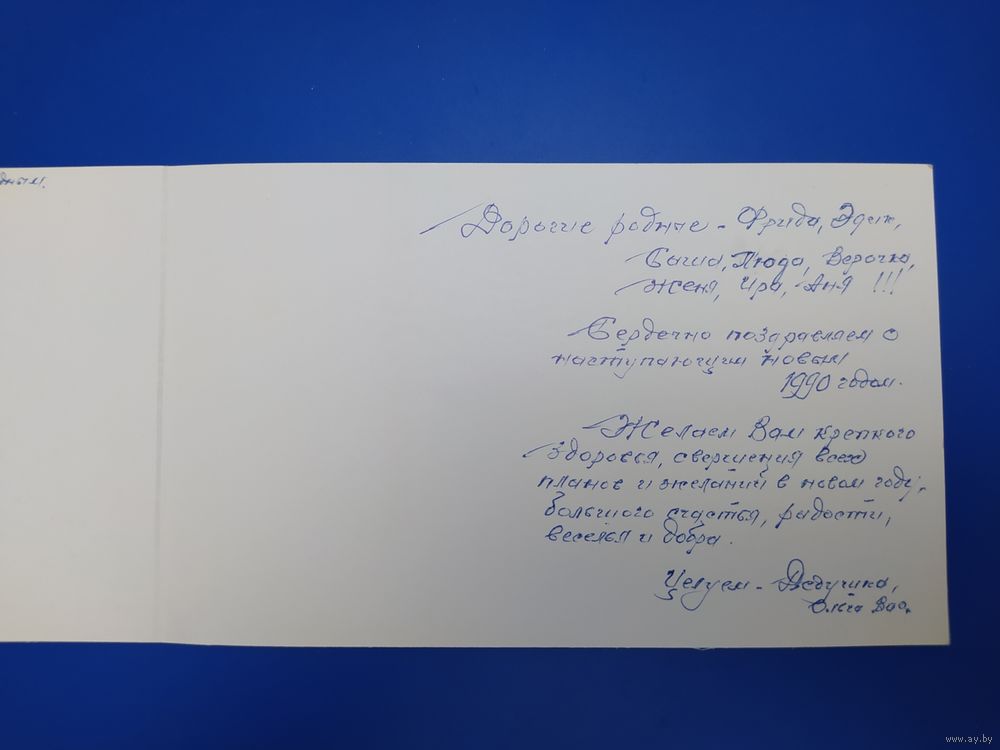 дным.
Дорогие родные - Фрида, Эдик,
Саша, Люда, Верочка,
Женя, Ира, Аня !!!
Сердечно поздравляем с
наступающим новым
1990 годом.
Желаем Вам крепкого
здоровья, свершения всех
планов и желаний в новом году,
большого счастья, радости,
веселья и добра.
Целуем - Дедушка,
www.ay.by